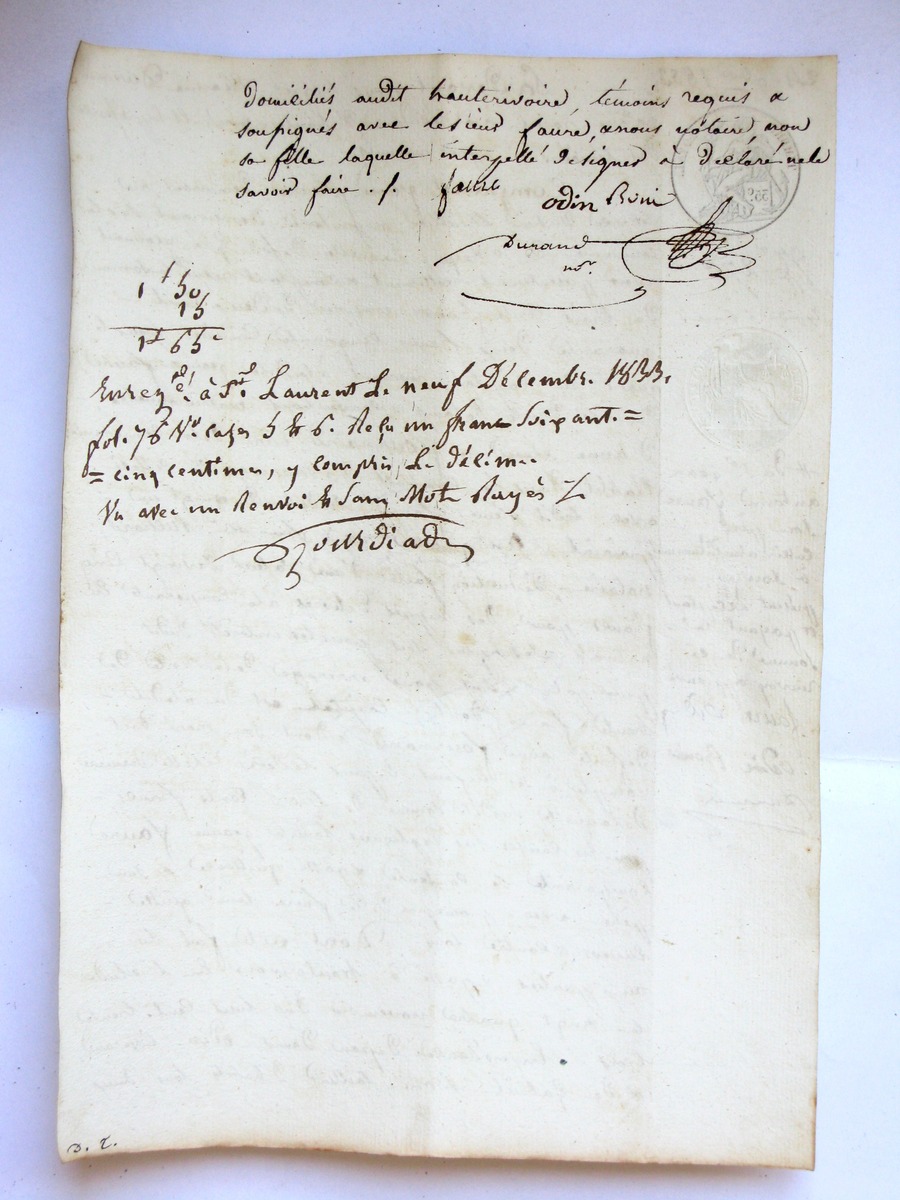 domiciliés audit hauterivoire, témoins requis &
soussignés avec le sieur faure, & nous notaire, non
sa fille laquelle interpellé de signer à déclaré ne le
savoir faire ./. faure
odin
Durand
nore.
1f 50
15
1f 65c
Enregé. à St. Laurent Le neuf Décembre 1833,
fol. 76 Vo. cazes 5 & 6. Reçu un franc Soixante=
=cinq centimes, y compris Le décime.
Vu avec un Renvoi & Sans Mots Rayés